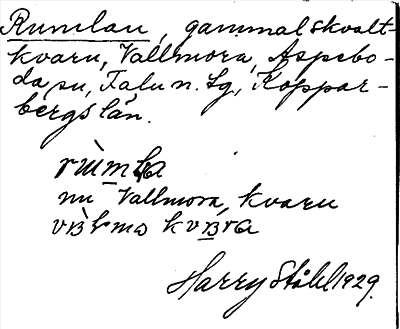 Rumlan, gammal skvalt-
kvarn, Vallmora, Aspebo-
da sn, Falu n. tg, Koppar-
bergs län.
rùmḷa
nu Vallmora kvarn
Harry Ståhl 1929.